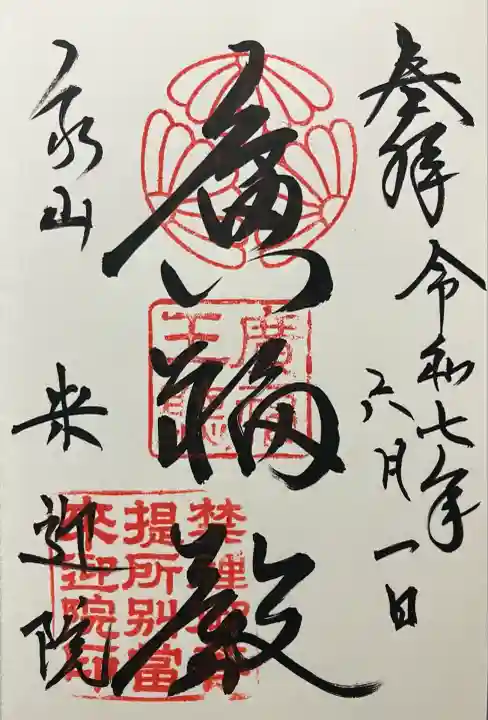 奉拝 令和七年
六月一日
廣福殿
泉山 来迎院
禁裡御菩
提所別當
来迎院印